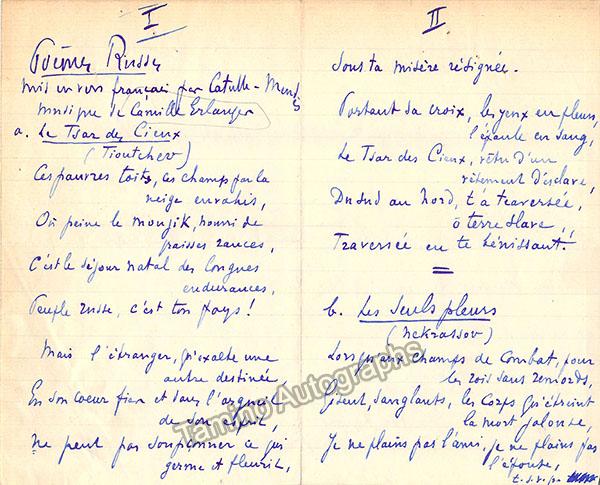 I
Poèmes Russes
mis en vers français par Catulle-Mendès
musique de Camille Erlanger
a. Le Tsar des Cieux
(Tioutchev)
Ces pauvres toits, ces champs par la
neige envahis,
Où peine le moujik, nourri de
graisses rances,
C'est le séjour natal des longues
endurances,
Peuple russe, c'est ton pays!
Mais l'étranger, qu'exalte une
autre destinée,
En son coeur fier et dans l'orgueil
de son esprit,
Ne peut pas soupçonner ce qui
germe et fleurit,
II
Sous ta misère résignée.
Portant sa croix, les yeux en pleurs,
l'épaule en sang,
Le Tsar des Cieux, vêtu d'un
vêtement d'esclave,
Du sud au Nord, t'a traversée,
ô terre slave,
Traversée en te bénissant!
b. Les Seuls pleurs
(Nekrassov)
Lorsqu'aux champs de combat, pour
les rois sans remords,
Gisent, sanglants, les corps qu'étreint
la mort jalouse,
Je ne plains pas l'ami, je ne plains pas
l'épouse,
t.s.v.p.
Tamino Autographs